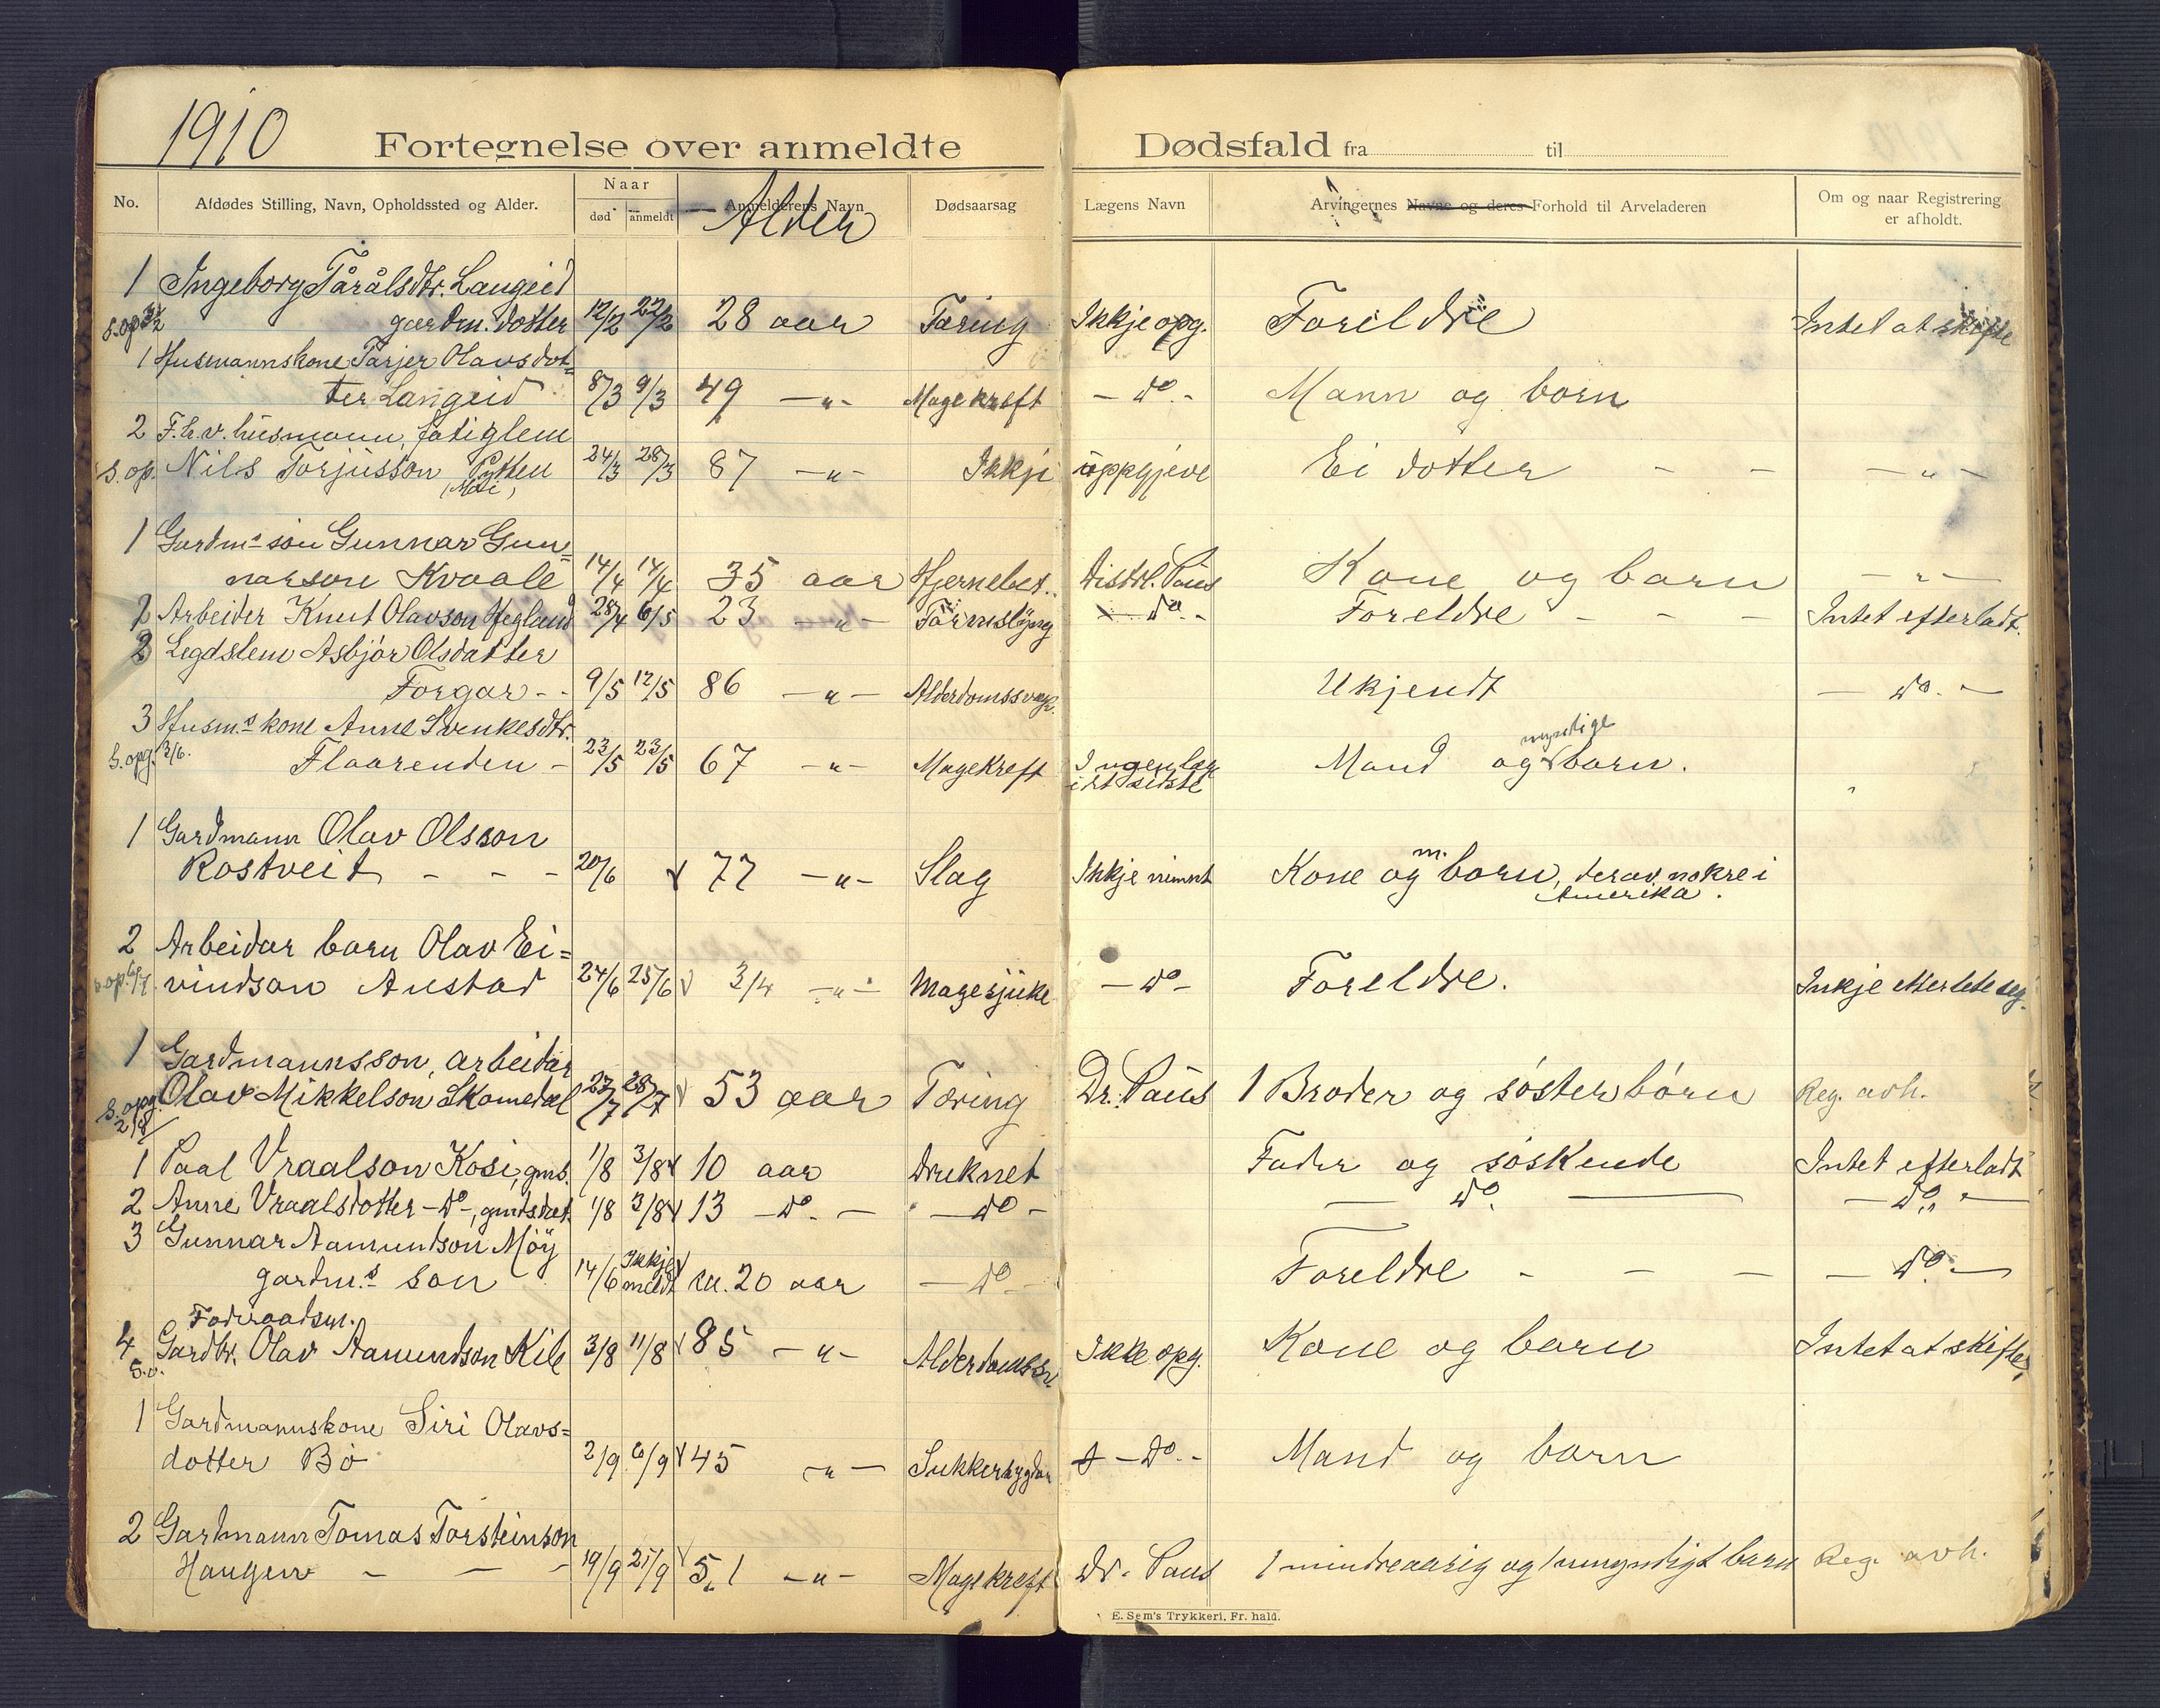 1910
Fortegnelse over anmeldte Dødsfald fra til
No. Afdødes Stilling, Navn, Opholdssted og Alder. Naar død anmeldt Anmelderens Navn Alder Dødsaarsag Lægens Navn Arvingernes Navne og deres Forhold til Arveladeren Om og naar Registrering er afholdt.
1 Ingeborg Tårålsdtr. Langeid
s.op gardm. dotter 12/2 22/2 28 aar Tæring Ikkje opg. Foreldre Intet at skifte
1 Husmannskone Tarjer Olavsdot=
ter Langeid 8/3 9/3 49 -"- Magekreft - do. - Mann og born
2 F.h.v. husmann, fatiglem
s.op. Nils Torjusson Pytten 24/3 28/3 87 -"- Ikkje uppgjeve Ei dotter - - -"-
(Moi)
1 Gardms son Gunnar Gun=
narson Kvaale 14/4 14/4 35 aar Hjernebet. Distrl. Paus Kone og barn -"-
2 Arbeider Knut Olavson Hegland 28/4 6/5 23 -"- Tarmslyng - do. - Foreldre - - - Intet efterladt.
2 Legdslem Asbjør Olsdatter
Forgar - - 9/5 12/5 86 -"- Alderdomssvagh. Ukjendt - do. -
3 Husms kone Anne Svenkesdtr.
s.opg. 3/6. Flaarenden - 23/5 23/5 67 -"- Magekreft Ingen læg i det sidste Mand og myndige born.
1 Gardmann Olav Olsson
Rostveit - - - 20/6 77 -"- Slag Ikkje nemnt Kone og m. born, derav nokre i
Amerika.
2 Arbeidar barn Olav Ei=
s.op. 6/7. vindson Austad 24/6 25/6 3/4 -"- Magesjuke - do - Foreldre. Inkje etterlete seg.
1 Gardmannsson, arbeidar
s.opg. 2/8 Olav Mikkelson Skomedal 27/7 28/7 53 aar Tæring Dr. Paus 1 Broder og søsterbørn Reg. avh.
1 Paal Vraalson Kosi, gms. 1/8 3/8 10 aar Druknet Fader og søskende Intet efterladt
2 Anne Vraalsdotter - do -, gmdsdat. 1/8 3/8 13 - do. - - do - - do. - - do. -
3 Gunnar Aamundson Møy
gardms son 14/6 Ikkje meldt ca. 20 aar - do - Foreldre - - - - do. -
Føderaadsm.
4 Gardbr. Olav Aamundson Kile 3/8 11/8 85 -"- Alderdomssv. Ikke opg. Kone og barn Intet at skifte,
s.o.
1 Gardmannskone Siri Olavs=
dotter Bø 2/9 6/9 45 -"- Sukkersygdom - do. - Mand og barn
2 Gardmann Tomas Torsteinson
Haugen - - - 19/9 21/9 51 -"- Magekreft Dr. Paus 1 mindreaarig og 1 umyndigt barn Reg. avh.
E. Sem's Trykkeri, Fr. hald.